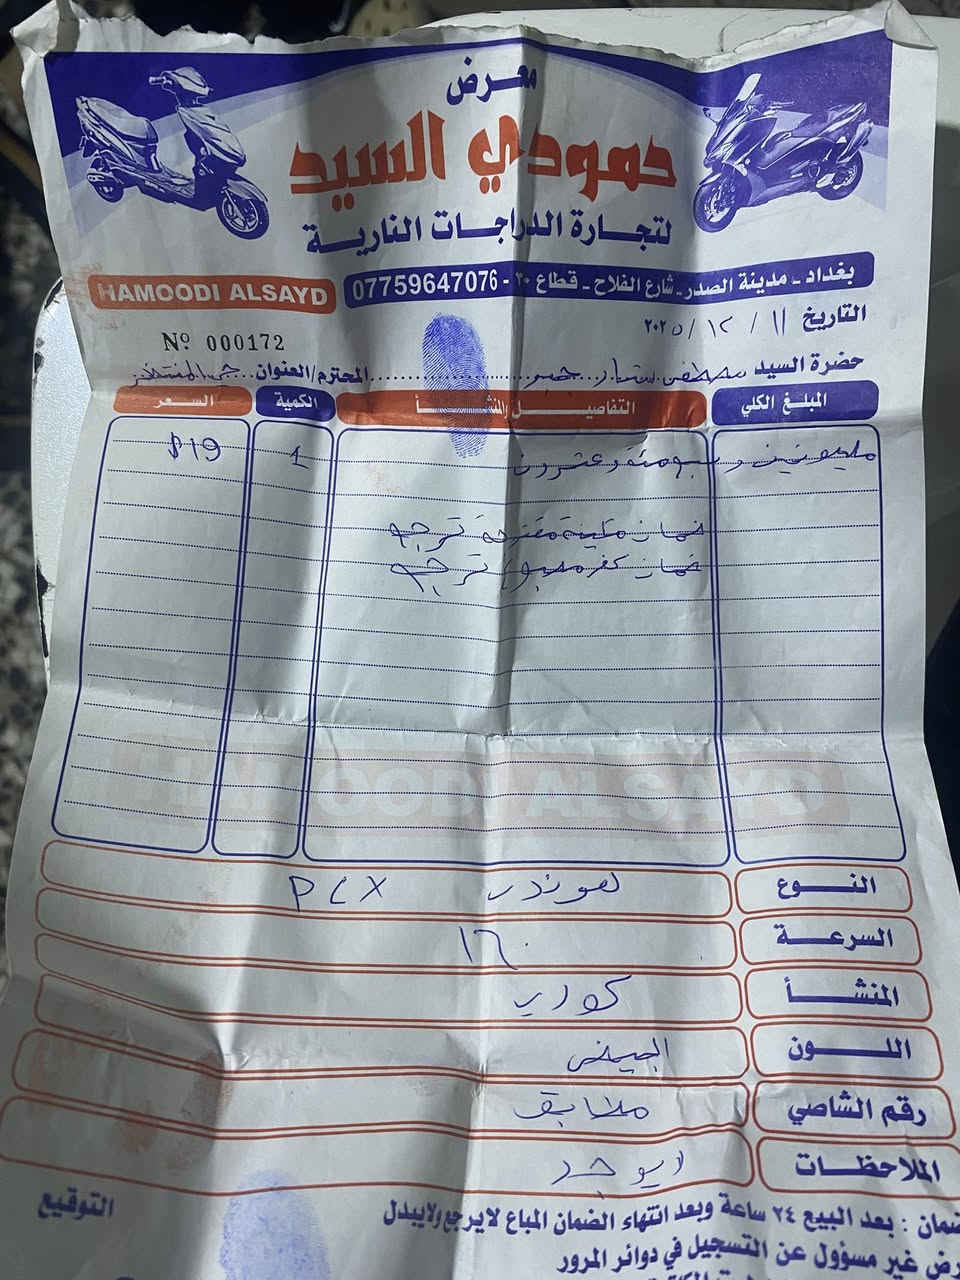 معرض
حمودي السيد
لتجارة الدراجات النارية
بغداد - مدينة الصدر - شارع الفلاح - قطاع ٣٠ - 07759647076
HAMOODI ALSAYD
التاريخ ١١ / ١٢ / ٢٠٢٥
Nº 000172
حضرة السيد مصطفى ستار جبر المحترم/العنوان حي المنتظر
المبلغ الكلي التفاصيل والمنشأ الكمية السعر
مليونين و سبعمئة وعشرون 1 $19
ضمان مكينة مفتوحة ترجع
ضمان كفر مضروب ترجع
HAMOODI ALSAYD
النوع هوندا PCX
السرعة ١٦٠
المنشأ كوري
اللون ابيض
رقم الشاصي مطابق
الملاحظات لا يوجد
ضمان : بعد البيع ٢٤ ساعة وبعد انتهاء الضمان المباع لايرجع ولايبدل
التوقيع
غير مسؤول عن التسجيل في دوائر المرور